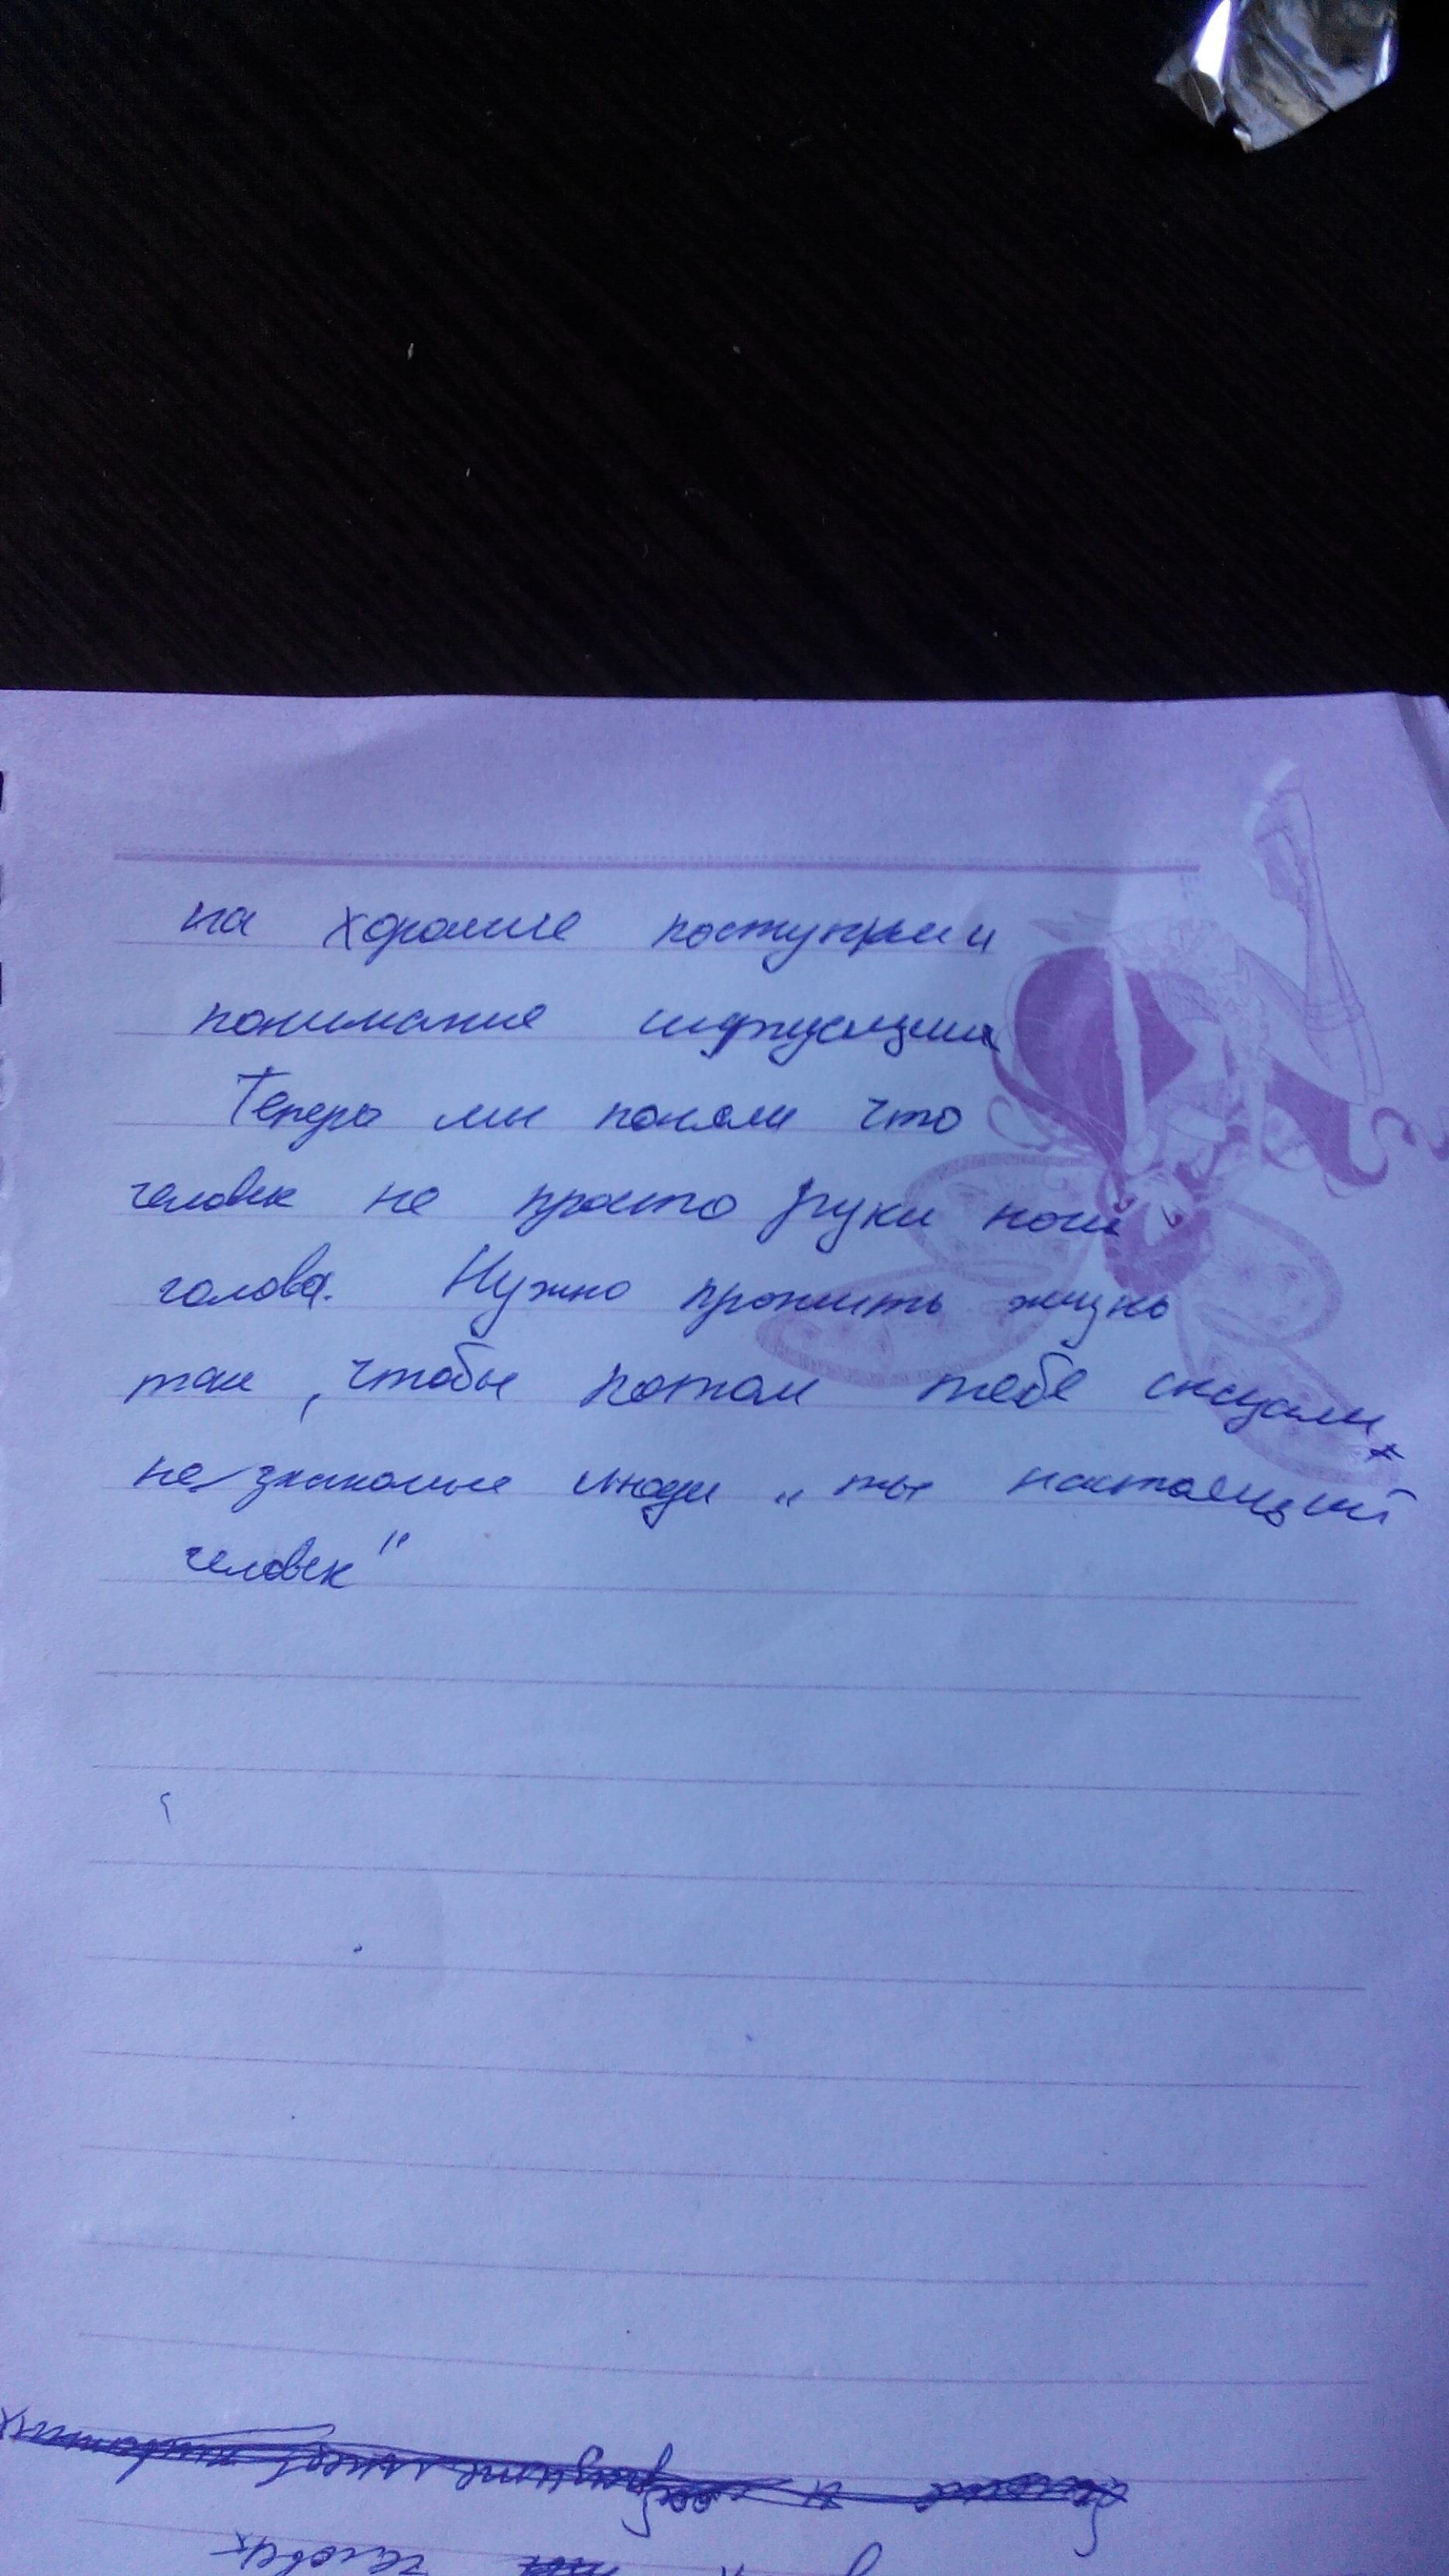 на хорошие поступки и
понимание ситуации
Теперь мы поняли что
человек не просто руки ноги
голова. Нужно прожить жизнь
так, чтобы потом тебе сказали
незнакомые люди „ты настоящий
человек"
человек